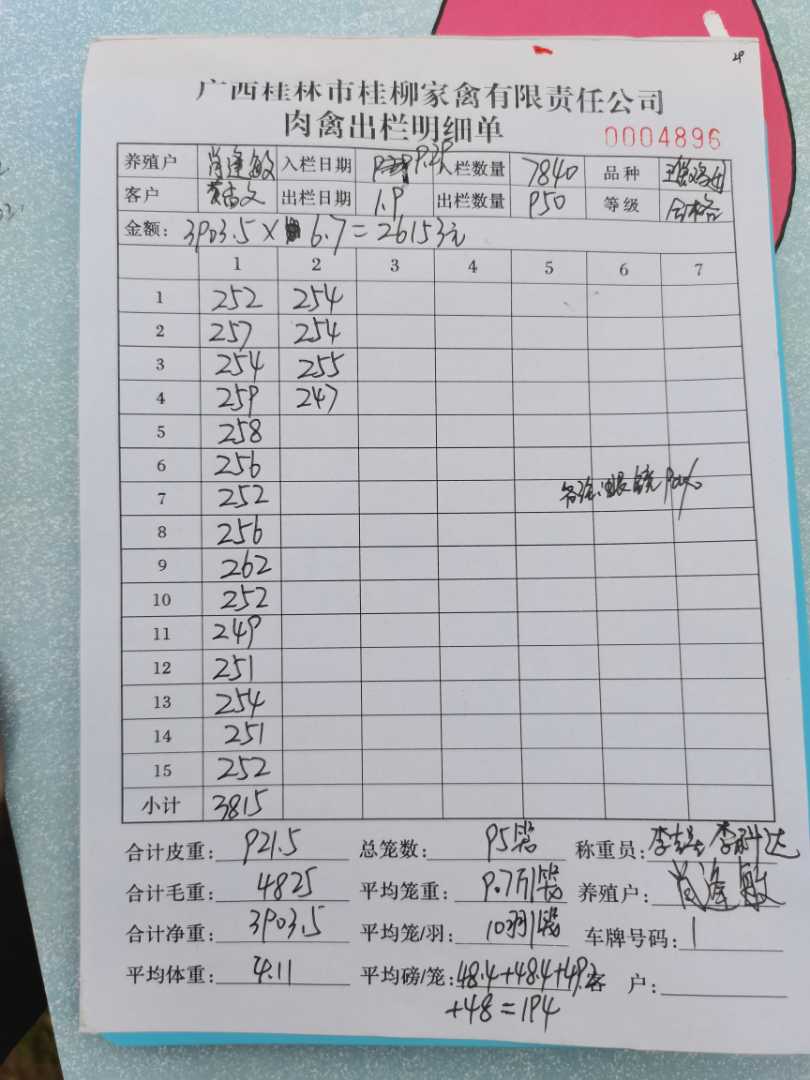 29
广西桂林市桂柳家禽有限责任公司
肉禽出栏明细单 0004896
养殖户 肖逢敏 入栏日期 9.29 入栏数量 7840 品种
客户 出栏日期 1.9 出栏数量 950 等级 合格
金额: 3903.5 × 6.7 = 26153元
1 2 3 4 5 6 7
1 252 254
2 257 254
3 254 255
4 259 247
5 258
6 256
7 252
8 256
9 262
10 252
11 249
12 251
13 254
14 251
15 252
小计 3815
合计皮重: 921.5 总笼数: 95笼 称重员: 李
合计毛重: 4825 平均笼重: 9.7斤/笼 养殖户: 肖逢敏
合计净重: 3903.5 平均笼/羽: 10羽/笼 车牌号码:
平均体重: 4.11 平均磅/笼: 48.4+48.4+49.2 客户:
+48=194